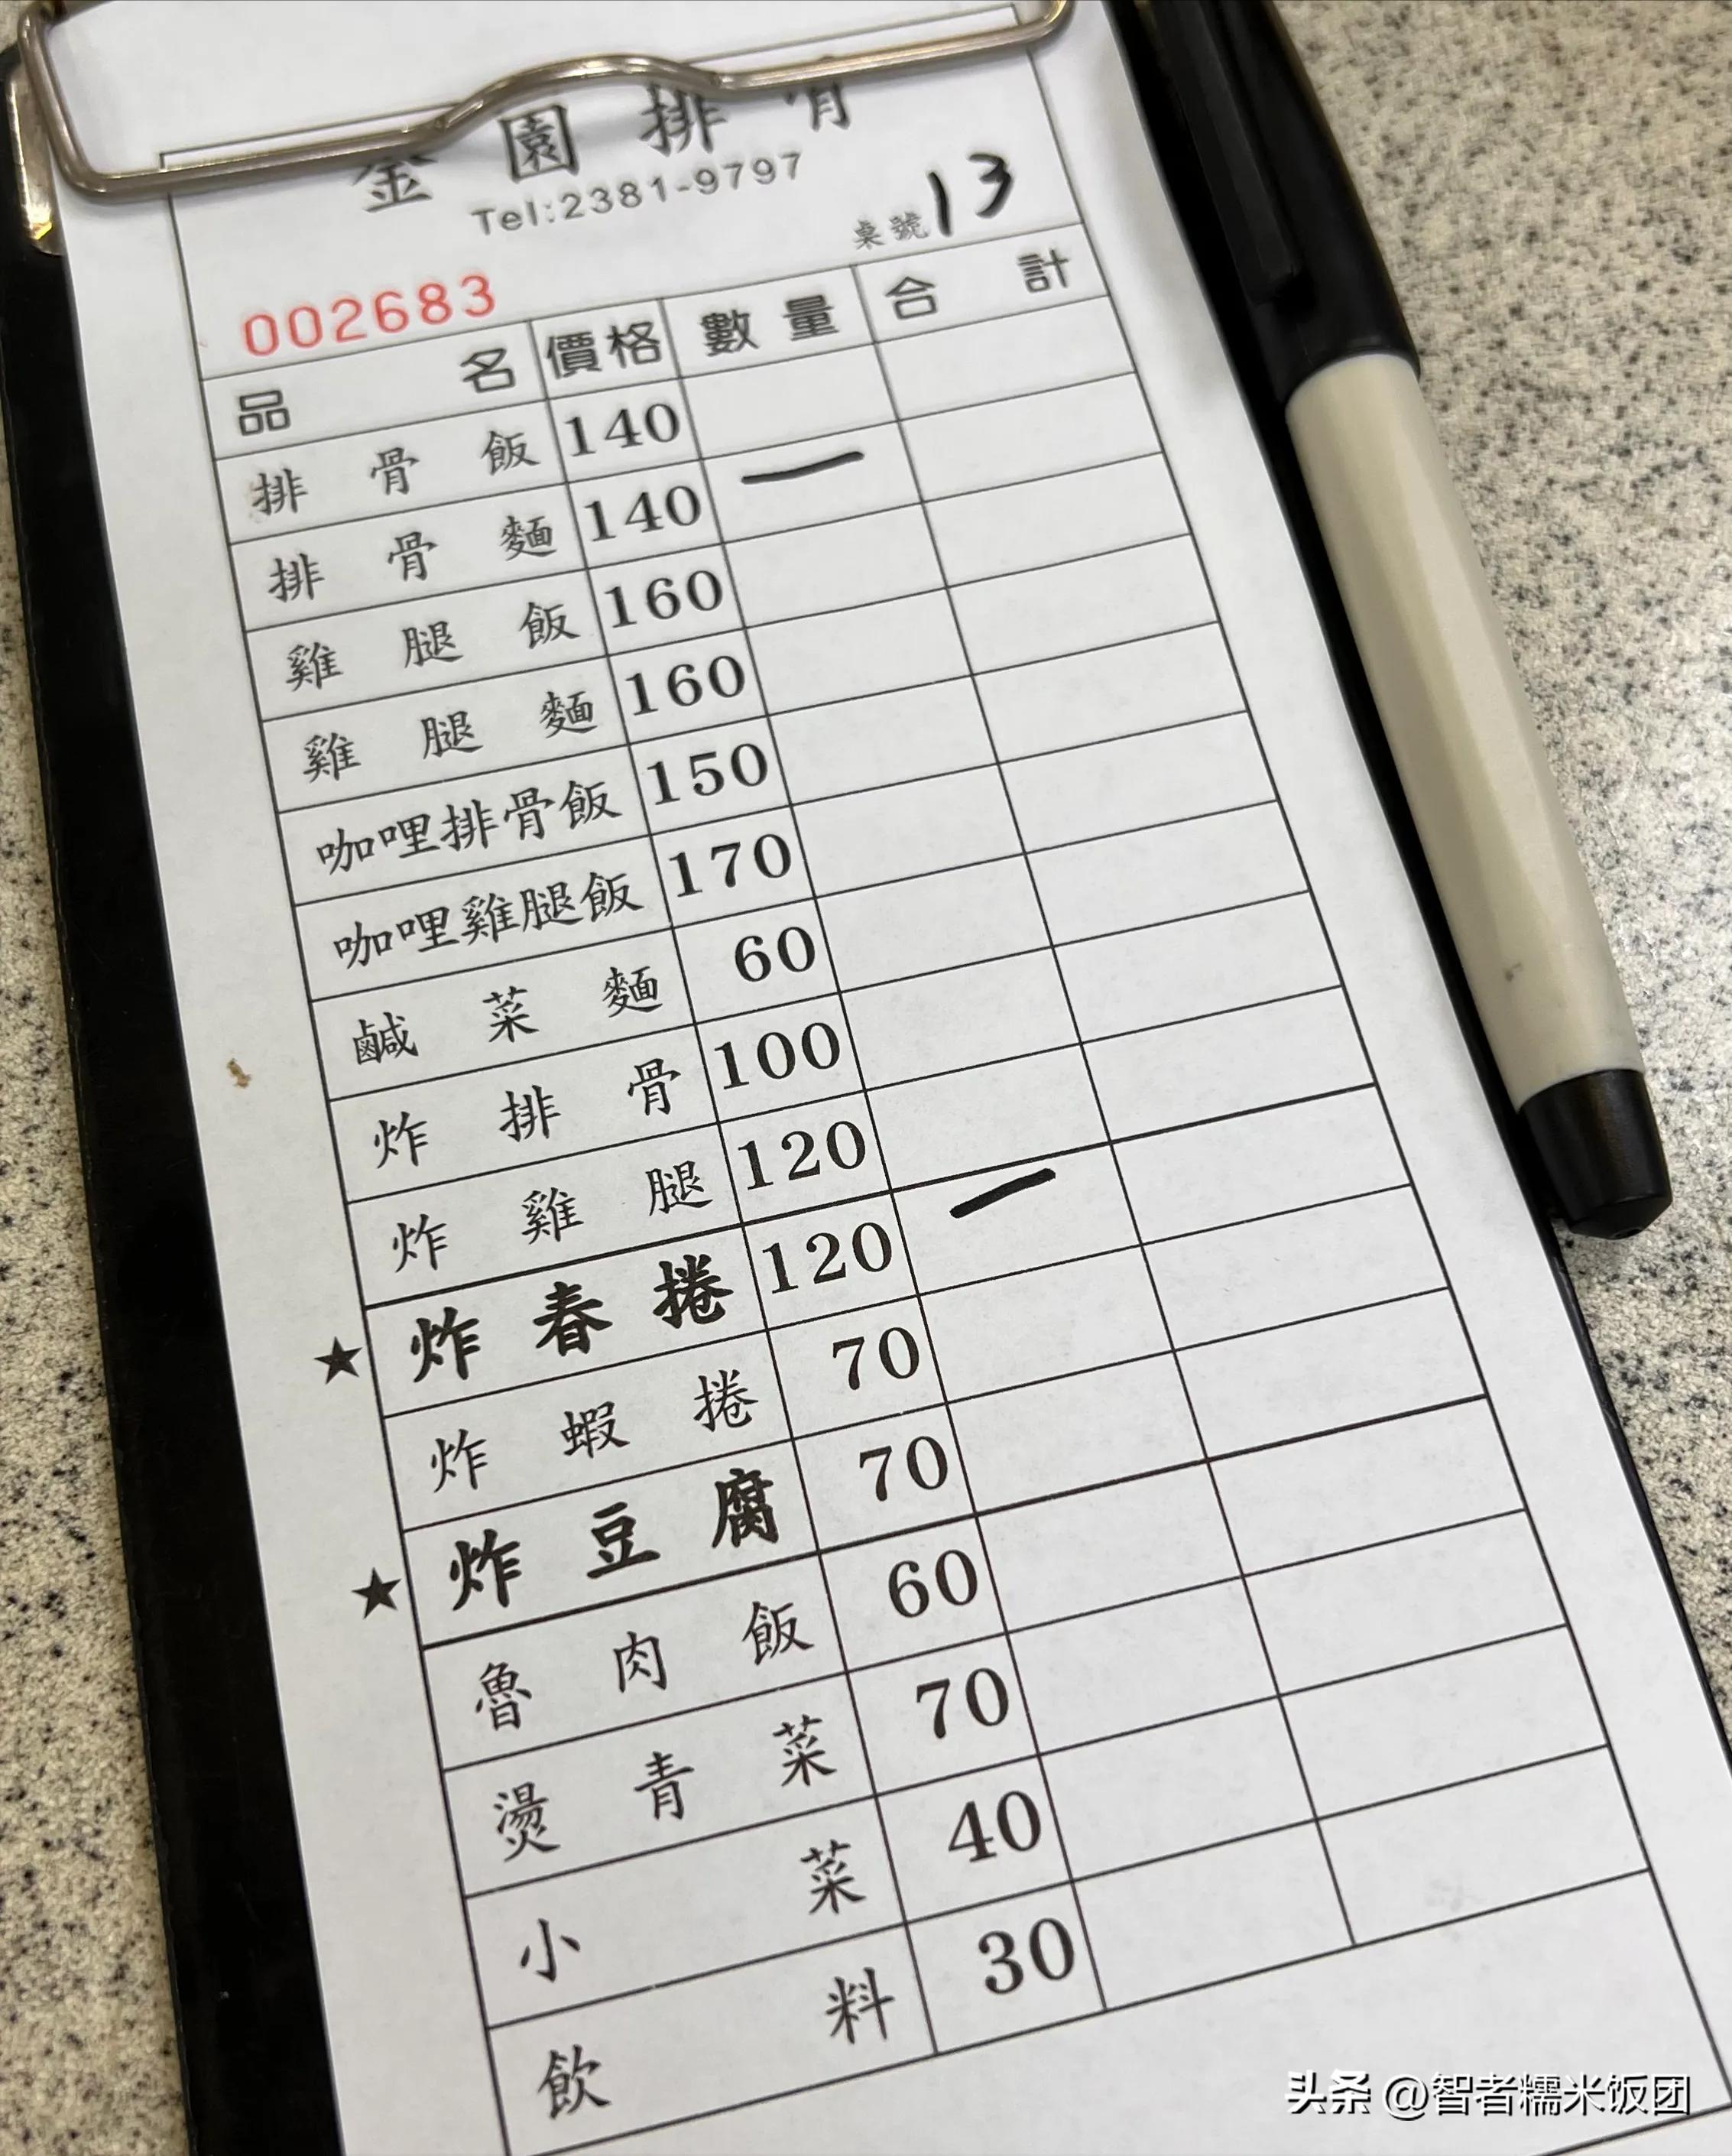 金園排骨
Tel:2381-9797
桌號 13
002683
品名 價格 數量 合計
排骨飯 140
排骨麵 140 一
雞腿飯 160
雞腿麵 160
咖哩排骨飯 150
咖哩雞腿飯 170
鹹菜麵 60
炸排骨 100
炸雞腿 120
★ 炸春捲 120 一
炸蝦捲 70
★ 炸豆腐 70
魯肉飯 60
燙青菜 70
小菜 40
飲料 30
头条 @智者糯米饭团